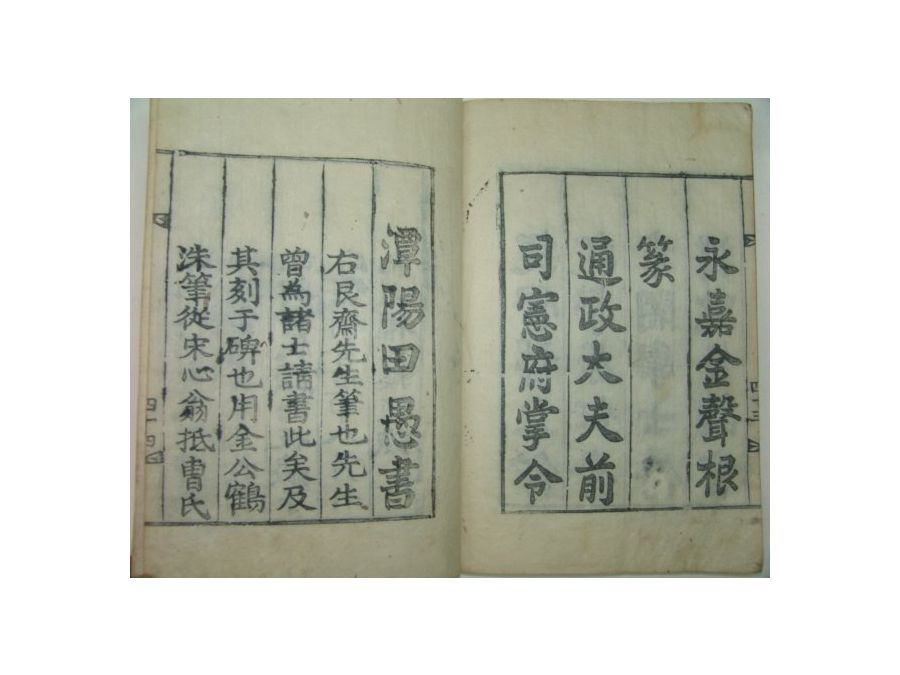 永嘉金聲根
篆
通政大夫前
司憲府掌令
四十三
潭陽田愚書
右艮齋先生筆也先生
曾為諸士請書此矣及
其刻于碑也用金公鶴
洙筆從宋心翁抵曹氏
四十四